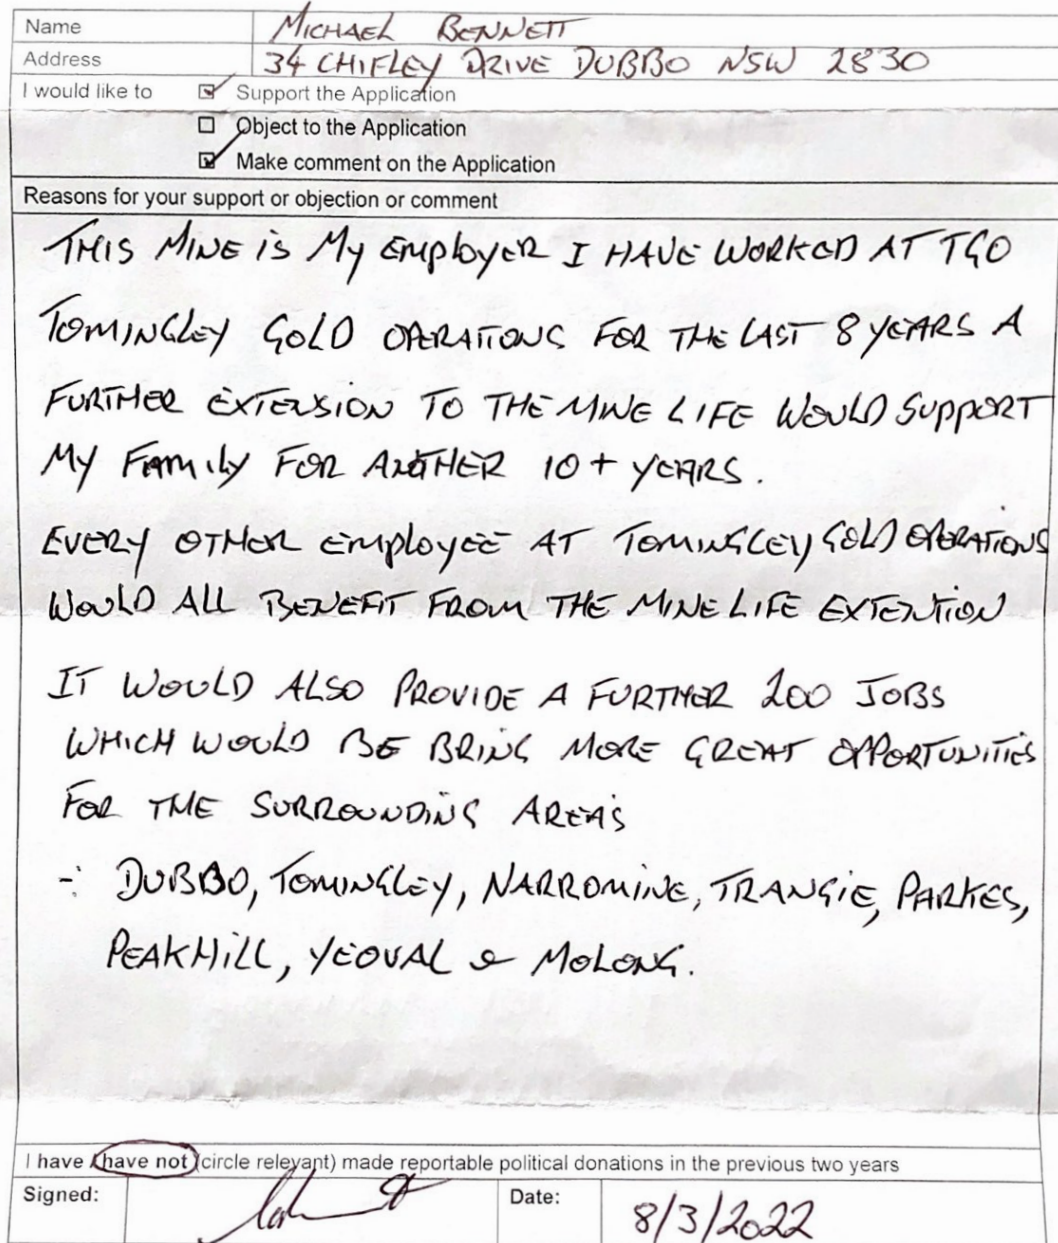 Name MICHAEL BENNETT
Address 34 CHIFLEY DRIVE DUBBO NSW 2830
I would like to Support the Application
Object to the Application
Make comment on the Application
Reasons for your support or objection or comment
THIS MINE is My EMployER I HAVE WORKED AT TGO
TOMINGLEY GOLD OPERATIONS FOR THE LAST 8 YEARS A
FURTHER EXTENSION TO THE MINE LIFE WOULD SUPPORT
MY FAMily FOR ANOTHER 10+ YEARS.
EVERY OTHER EMployEE AT TOMINGLEY GOLD OPERATIONS
WOULD ALL BENEFIT FROM THE MINE LIFE EXTENTION
IT WOULD ALSO PROVIDE A FURTHER 200 JOBS
WHICH WOULD BE BRING MORE GREAT OPPORTUNITIES
FOR THE SURROUNDING AREAS
-: DUBBO, TOMINGLEY, NARROMINE, TRANGIE, PARKES,
PEAKHILL, YEOVAL & MOLONG.
I have / have not (circle relevant) made reportable political donations in the previous two years
Signed: Date: 8/3/2022